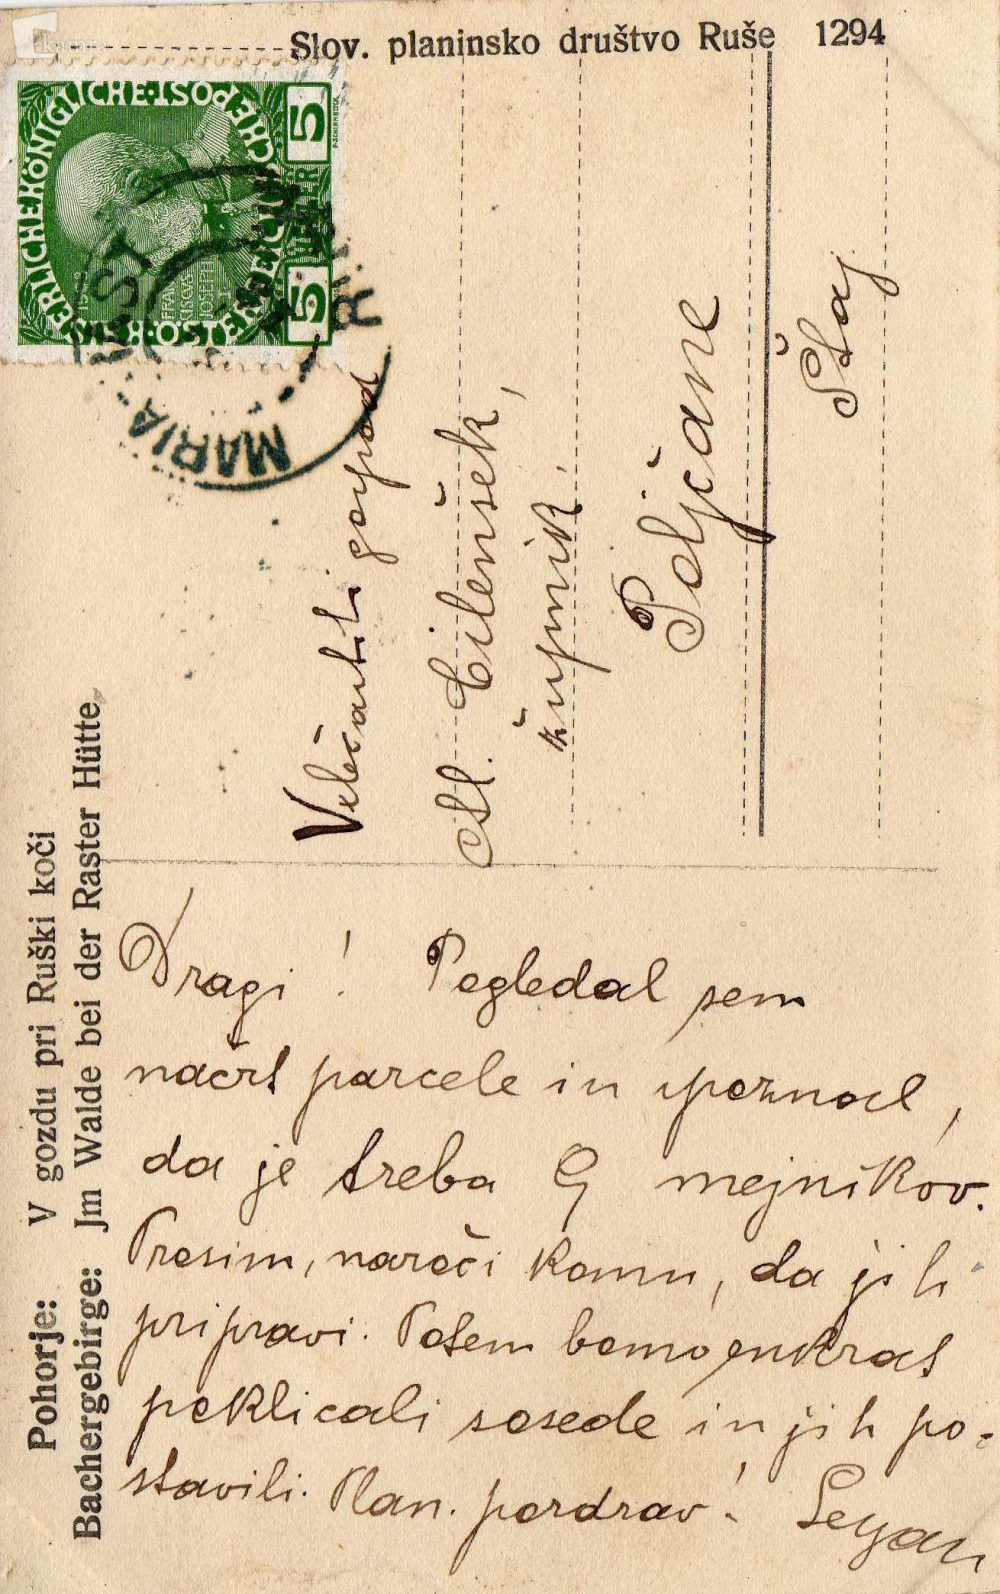 Slov. planinsko društvo Ruše 1294
KAISERLICHE KÖNIGLICHE POST
5 HELLER 5
FRANCISCUS JOSEPH I
MARIA RAST
Velečastiti gospod
Al. Cilenšek,
župnik.
Poljčane
Štaj
Pohorje: V gozdu pri Ruški koči
Bachergebirge: Jm Walde bei der Raster Hütte
Dragi! Pogledal sem
načrt parcele in spoznal,
da je treba 9 mejnikov.
Prosim, naroči komu, da jih
pripravi. Potem bomo enkrat
poklicali sosede in jih po-
stavili. Plan. pozdrav!